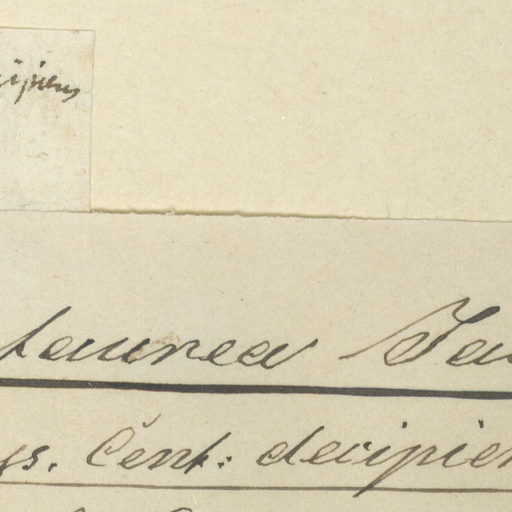 cipiens
taurea Ja
gs. Cent: decipien